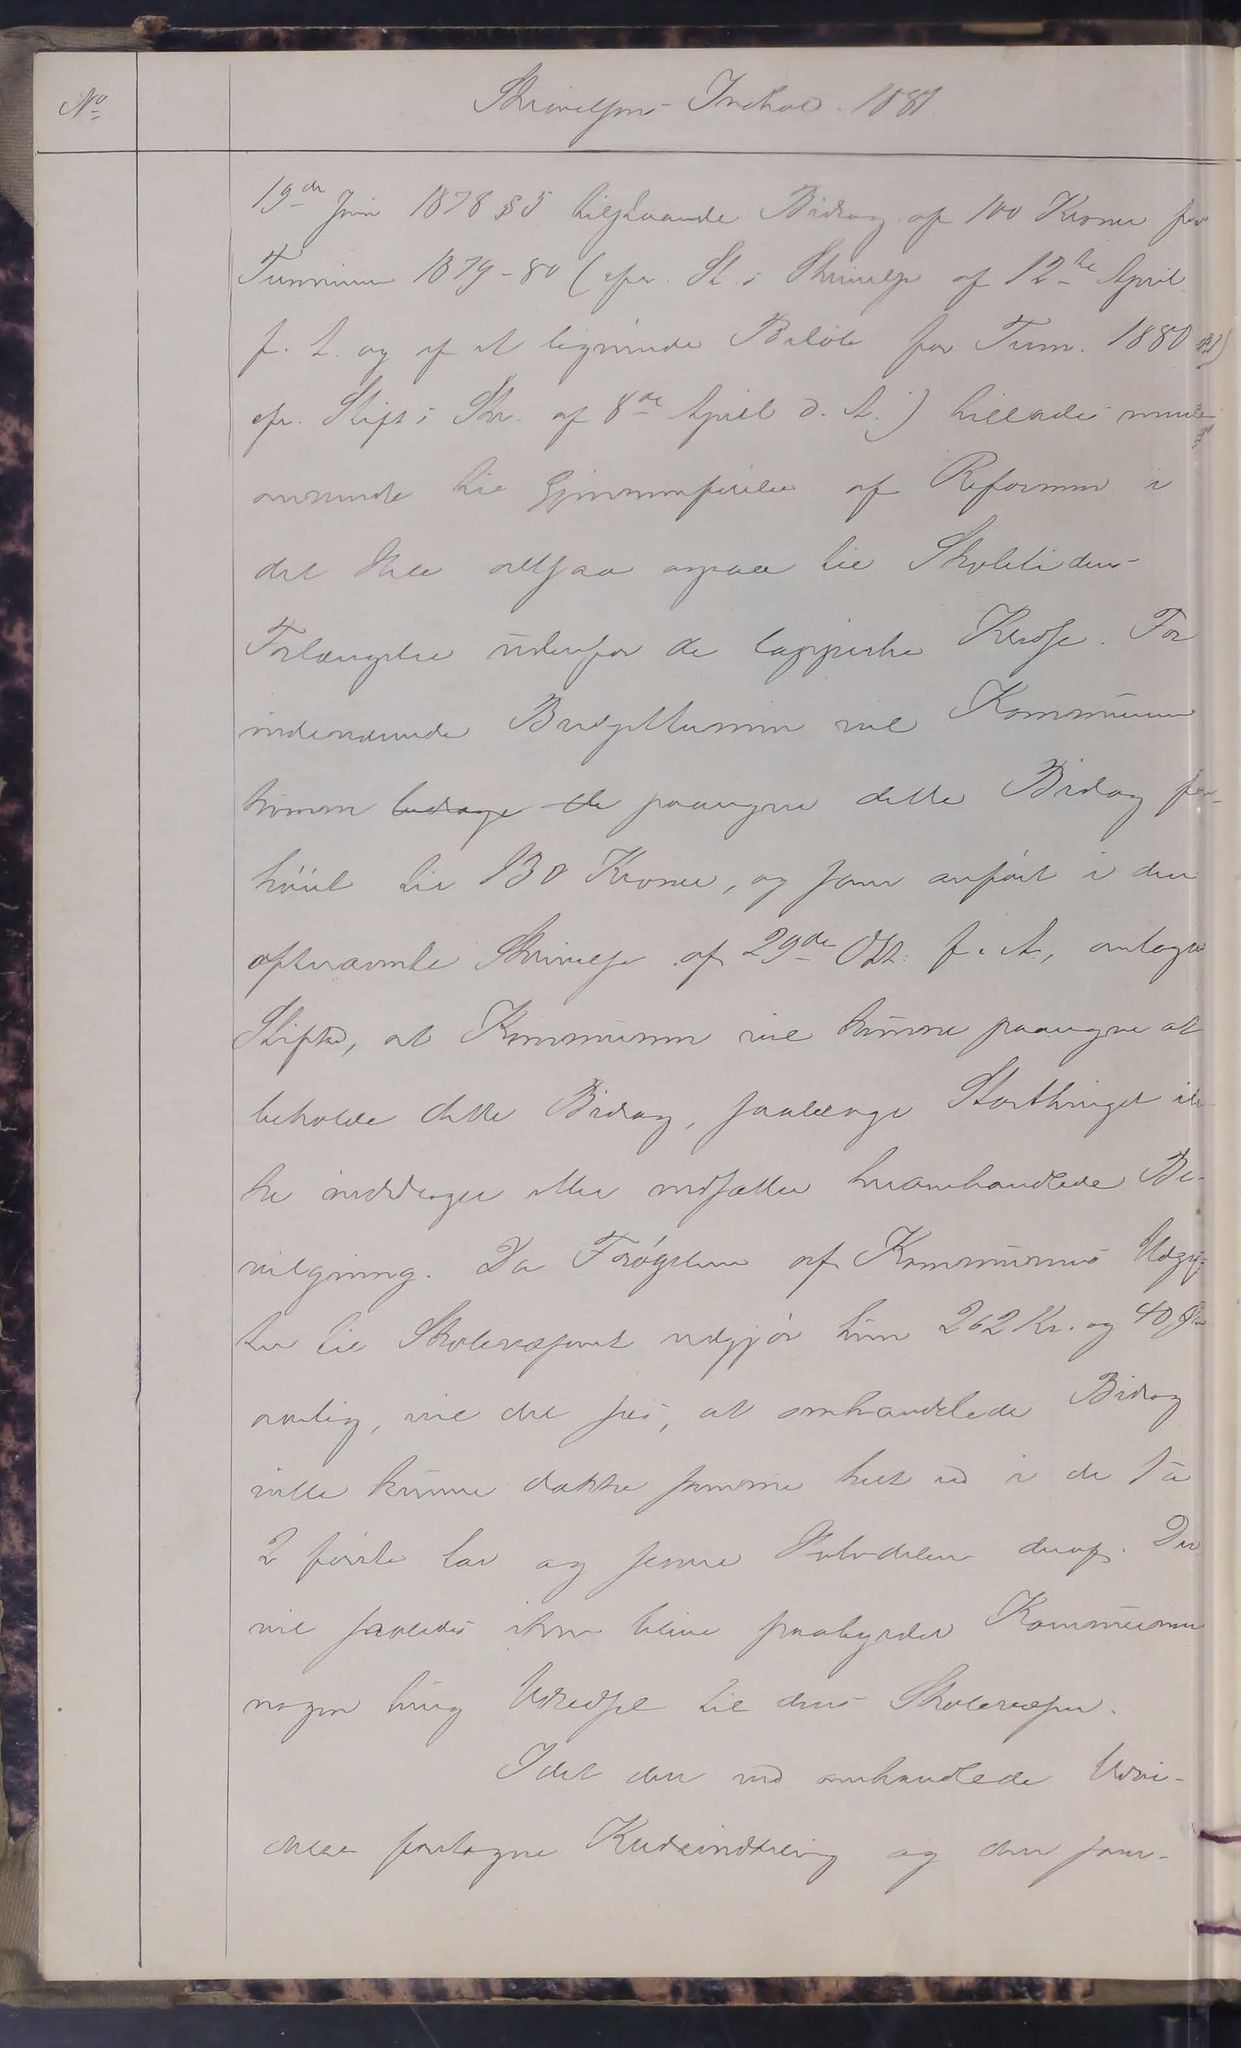 No
Skrivelsens Indhold. 1881
19de Juni 1878 § 5 tilstaaede Bidrag af 100 Kroner for
Terminen 1879-80 (cfr. St.s Skrivelse af 12te April
f. A. og af et lignende Beløb for Term. 1880 81)
cfr. Stifts Skr. af 8de April d. A.) tillades
til Gjennemførelse af Reformen i
det Hele altsaa ogsaa til Skoletidens
Forlængelse udenfor de lappiske Kredse. For
indeværende Budgettermin vil Kommunen
kunne bidrage de paaregne dette Bidrag for-
høiet til 130 Kroner, og som anført i den
oftnævnte Skrivelse af 29de Okt. f. A., antager
Stiftet, at Kommunen vil kunne paaregne at
beholde dette Bidrag, saalænge Storthinget ik-
ke inddrager eller nedsætter heromhandlede Be-
vilgning. Da Forøgelsen af Kommunens Udgif-
ter til Skolevæsenet udgjør kun 262 Kr. og 40 Øre
aarlig, vil det sees, at omhandlede Bidrag
ville kunne dække samme helt ud i de 1 à
2 første Aar og senere Halvdelen deraf. Der
vil saaledes ikke blive paabyrdet Kommunen
nogen tung Udredsel til dens Skolevæsen.
Idet den ved omhandlede Udvi-
delse foretagne Kredsinddeling og den sam-